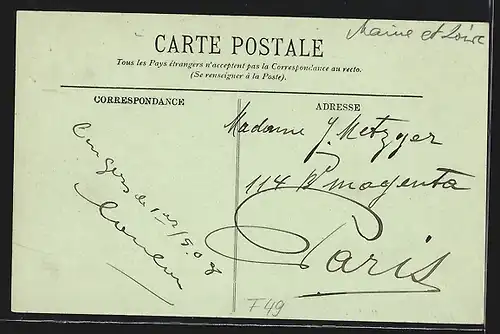 Maine et Loire
CARTE POSTALE
Tous les Pays étrangers n'acceptent pas la Correspondance au recto.
(Se renseigner à la Poste).
CORRESPONDANCE
Angers le 1er/5.08
ADRESSE
Madame J. Metzger
114 Bd magenta
Paris
F 49